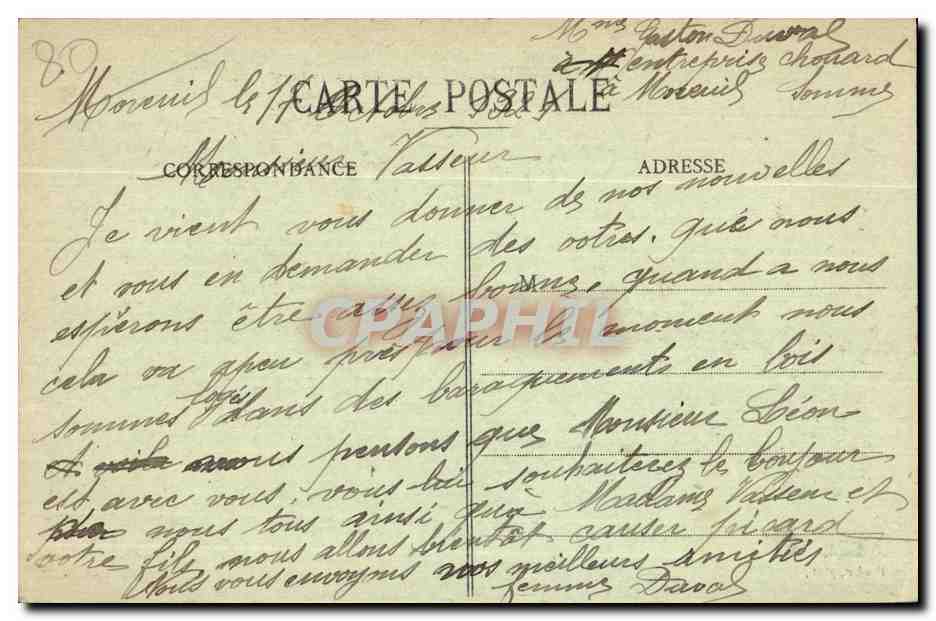 80
Mme Gaston Duval
à entreprise Chouard
à Moreuil Somme
Moreuil le 17 Octobre
CARTE POSTALE
CORRESPONDANCE
ADRESSE
Monsieur Vasseur
Je vient vous donner de nos nouvelles
et vous en demander des votres. que nous
M
espérons être assez bonne, quand a nous
CPAPHIL
cela va apeu près pour le moment nous
sommes logés dans des baraquements en bois
nous pensons que Monsieur Léon
est avec vous, vous lui souhaiterez le bonjour
nous tous ainsi qu'à Madame Vasseur et
votre fils, nous allons bientôt causer picard
Nous vous envoyons nos meilleurs amitiés
femme Duval